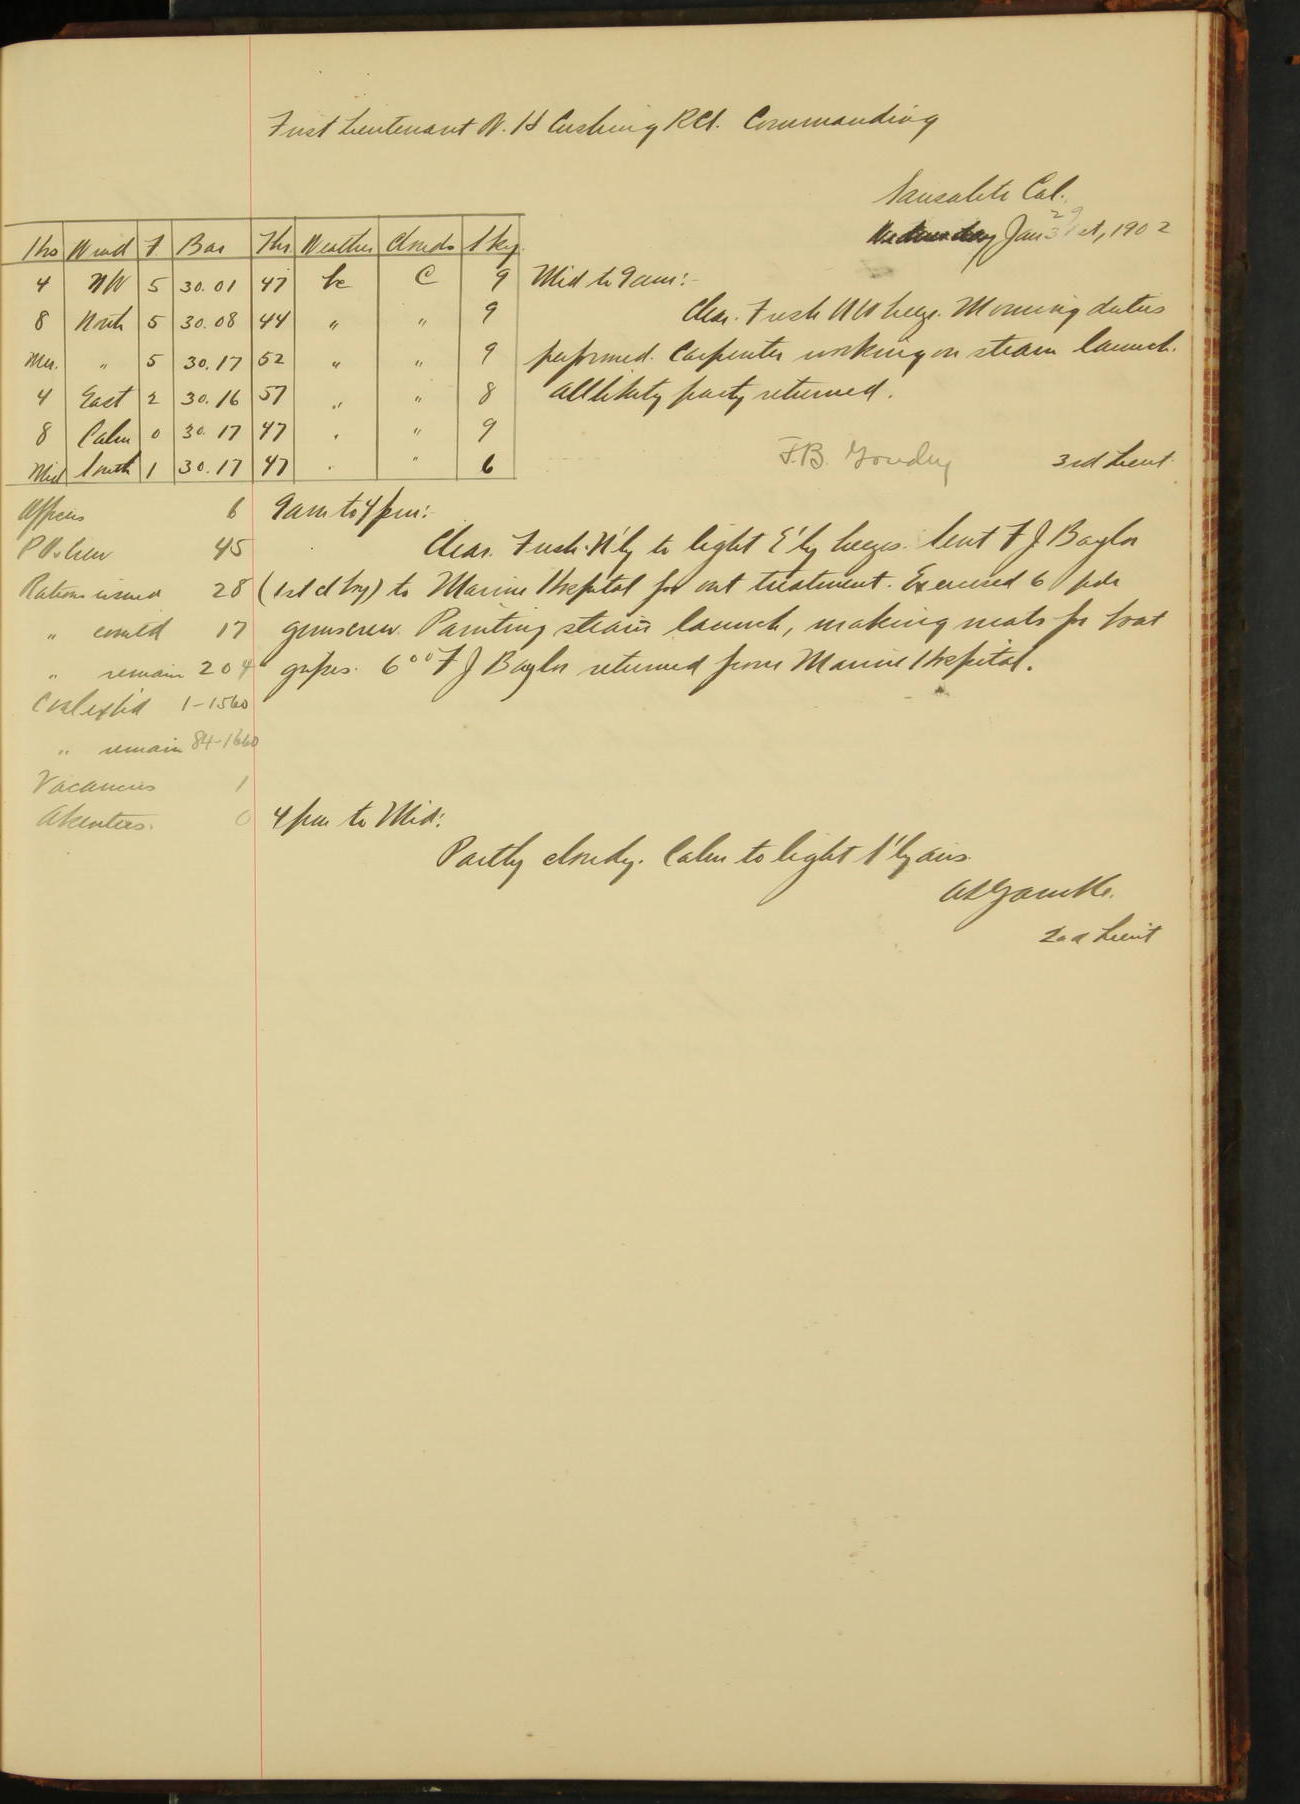 First Lieutenant W. H Cushing RCS. Commanding
Sausalito Cal.
Wednesday Jan 29 31st, 1902
Hrs Wind F. Bar Thr Weather Clouds Sky
4 NW 5 30.01 47 bc C 9
8 North 5 30.08 44 " " 9
Mer. " 5 30.17 52 " " 9
4 East 2 30.16 57 " " 8
8 Calm 0 30.17 47 " " 9
Mid South 1 30.17 47 " " 6
Mid to 9 am:-
Clear. Fresh NW breeze. Morning duties
performed. Carpenter working on steam launch.
All liberty party returned.
F.B. Goudey 3rd Lieut.
Officers 6
P.O. & crew 45
Rations issued 28
" com'td 17
" remain 204
Coal exp'd 1-1560
" remain 84-1660
Vacancies 1
Absentees. 0
9 am to 4 pm:-
Clear. Fresh N'ly to light E'ly breezes. Sent F J Baylor
(1st cl boy) to Marine Hospital for out treatment. Exercised 6 pdr
guns crew. Painting steam launch, making mats for boat
gripes. 6 00 F J Baylor returned from Marine Hospital.
4 pm to Mid:
Partly cloudy. Calm to light S'ly airs.
A L Gamble.
2nd Lieut